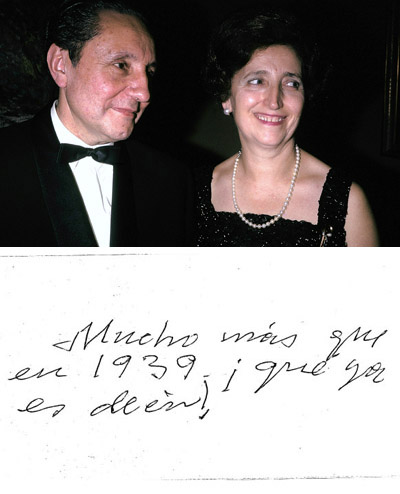 Mucho más que
en 1939. ¡ que ya
es decir!